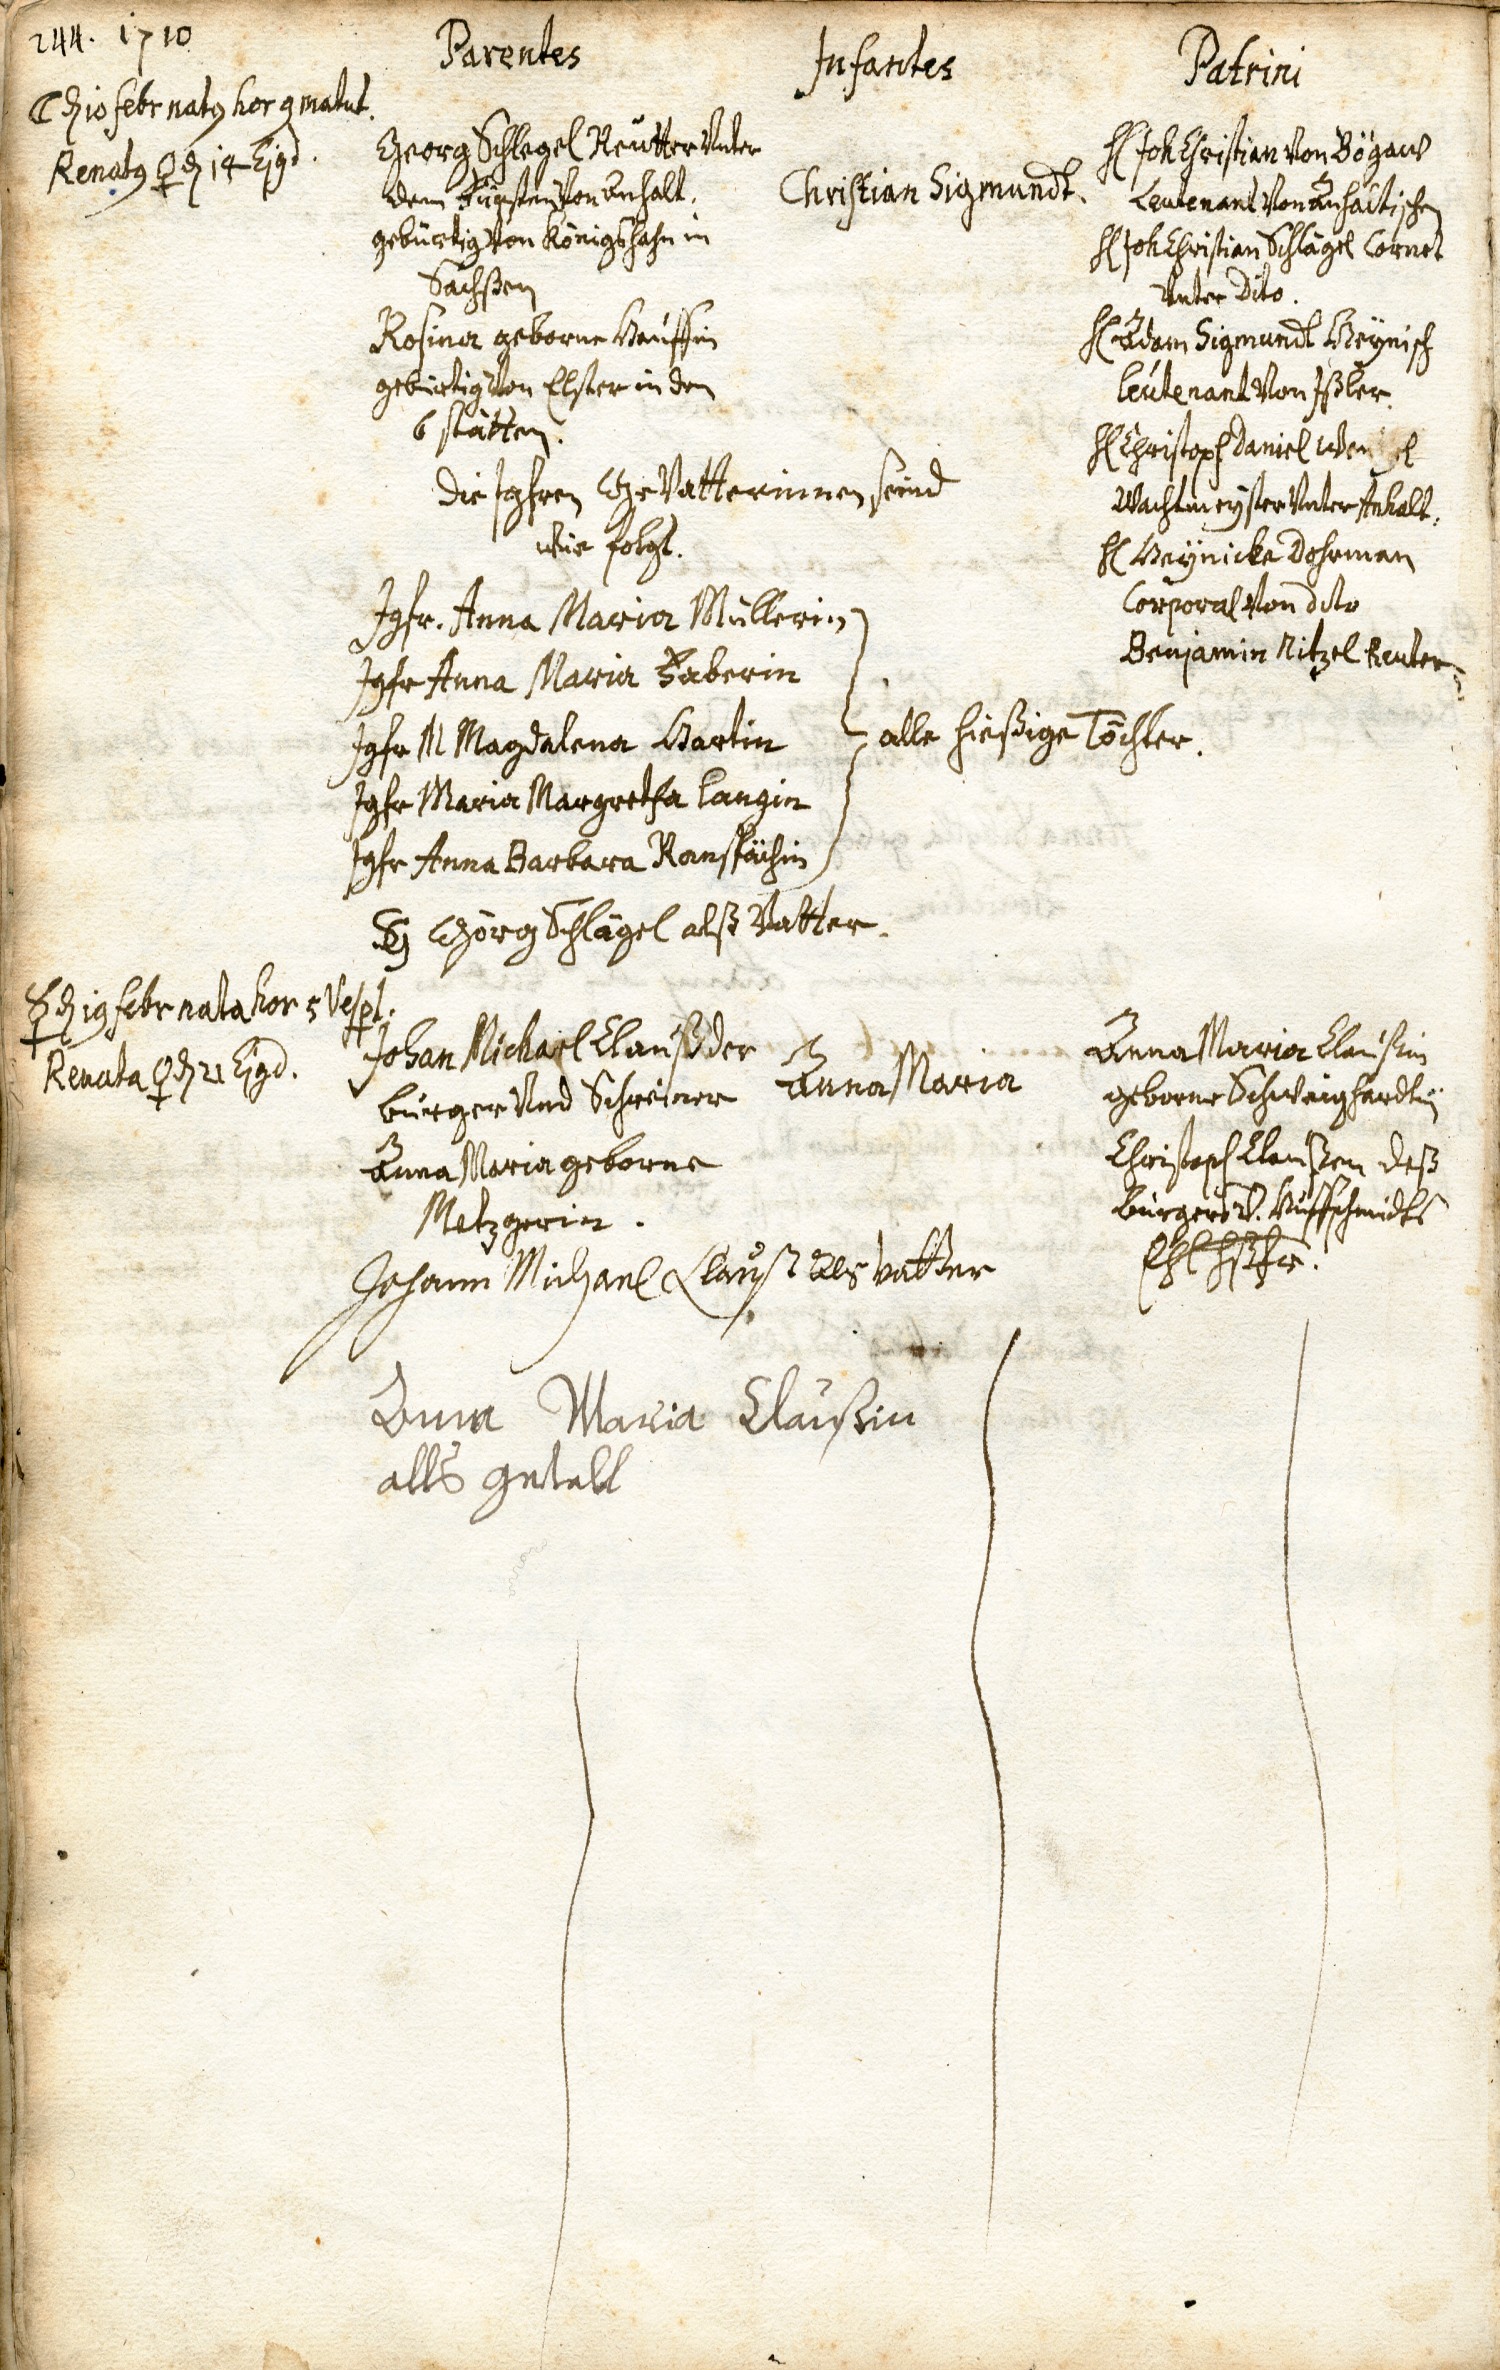 244. 1710
Parentes
Infantes
Patrini
☾ d 10 febr natus hor 9 matut.
Renatus ♀ d 14 Ejusd.
Georg Schlegel Reutter Unter
dem Fürsten Von Anhalt.
gebürtig Von Königshahn in
Sachßen
Rosina geborne Hauffin
gebürtig Von Elster in den
6 stätten.
Christian Sigmundt.
H Joh Christian Von Bögaw
Leutenant Von Anhaltischen
H Joh Christian Schlägel Cornet
Unter dito.
H Adam Sigmundt Heynisch
leutenant Von Ißler.
H Christoph Daniel
Wachtmeyster Unter Anhalt.
H Heynicke Dohrman
Corporal Von dito
Benjamin Nitzel Reuter
Die Jgfren Gevatterinnen seind
wie folgt.
Jgfr. Anna Maria Müllerin
Jgfr Anna Maria Faberin
Jgfr M Magdalena Hartin
Jgfr Maria Margretha Langin
Jgfr Anna Barbara Ranspächin
alle hießige Töchter.
Görg Schlägel alß Vatter.
☿ d 19 febr nata hor 5 Vespt.
Renata ♀ d 21 Ejusd.
Johan Michael Clauß der
burger Und Schreiner
Anna Maria geborne
Metzgerin.
Anna Maria
Anna Maria Claußin
geborne Schweighardtin
Christoph Claußen deß
burgers V. Huffschmidts
Ehl Hßfr.
Johann Michael Clauß als vatter
Anna Maria Claußin
alls